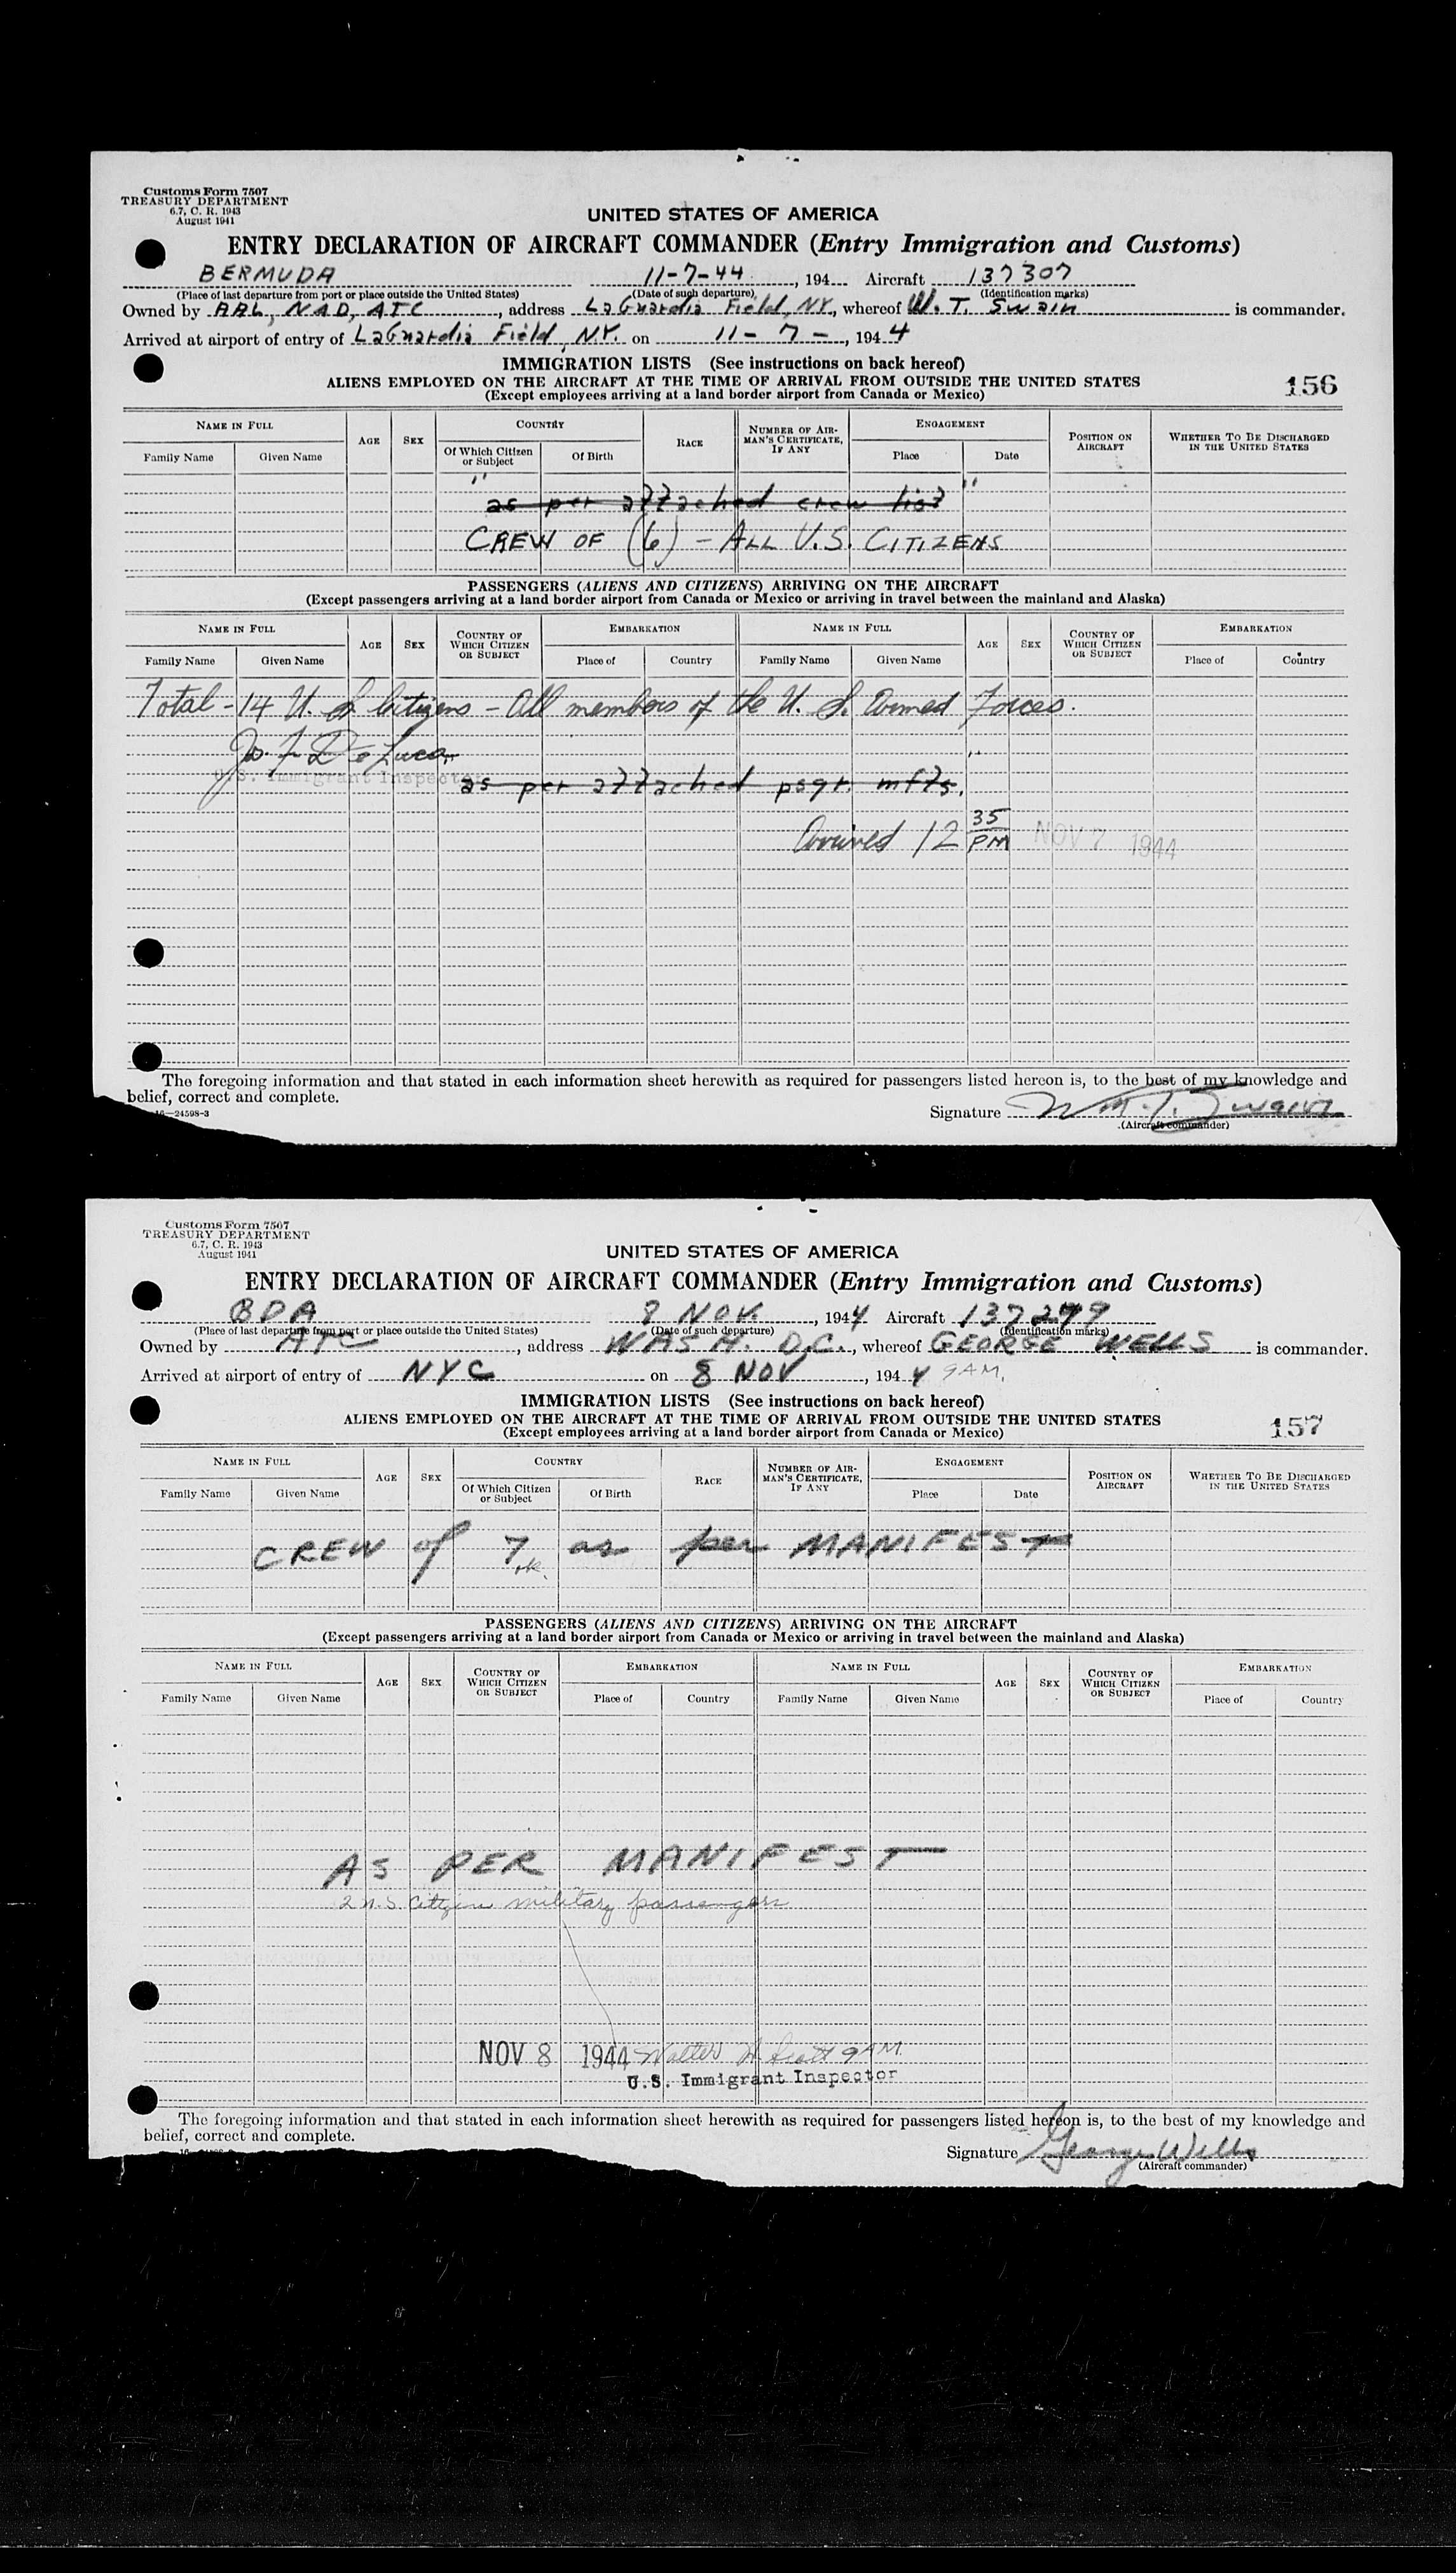 Customs Form 7507
TREASURY DEPARTMENT
6.7, C. R. 1943
August 1941
UNITED STATES OF AMERICA
ENTRY DECLARATION OF AIRCRAFT COMMANDER (Entry Immigration and Customs)
BERMUDA 11-7-44, 194 Aircraft 137307
(Place of last departure from port or place outside the United States) (Date of such departure) (Identification marks)
Owned by AAL, NAD, ATC, address LaGuardia Field, N.Y., whereof W. T. Swain is commander.
Arrived at airport of entry of LaGuardia Field, N.Y. on 11-7-, 1944
IMMIGRATION LISTS (See instructions on back hereof)
ALIENS EMPLOYED ON THE AIRCRAFT AT THE TIME OF ARRIVAL FROM OUTSIDE THE UNITED STATES
156
(Except employees arriving at a land border airport from Canada or Mexico)
NAME IN FULL AGE SEX COUNTRY RACE NUMBER OF AIRMAN'S CERTIFICATE, IF ANY ENGAGEMENT POSITION ON AIRCRAFT WHETHER TO BE DISCHARGED IN THE UNITED STATES
Family Name Given Name Of Which Citizen or Subject Of Birth Place Date
"as per attached crew list"
CREW OF (6) - ALL U.S. CITIZENS
PASSENGERS (ALIENS AND CITIZENS) ARRIVING ON THE AIRCRAFT
(Except passengers arriving at a land border airport from Canada or Mexico or arriving in travel between the mainland and Alaska)
NAME IN FULL AGE SEX COUNTRY OF WHICH CITIZEN OR SUBJECT EMBARKATION NAME IN FULL AGE SEX COUNTRY OF WHICH CITIZEN OR SUBJECT EMBARKATION
Family Name Given Name Place of Country Family Name Given Name Place of Country
Total - 14 U. S. Citizens - All members of the U. S. Armed Forces.
Jos. F. De Luca
U.S. Immigrant Inspector
as per attached psgr. mfts.
Arrived 12 35 PM NOV 7 1944
The foregoing information and that stated in each information sheet herewith as required for passengers listed hereon is, to the best of my knowledge and
belief, correct and complete.
16—24598-3
Signature Wm. T. Swain
(Aircraft commander)
Customs Form 7507
TREASURY DEPARTMENT
6.7, C. R. 1943
August 1941
UNITED STATES OF AMERICA
ENTRY DECLARATION OF AIRCRAFT COMMANDER (Entry Immigration and Customs)
BDA 8 NOV., 1944 Aircraft 137279
(Place of last departure from port or place outside the United States) (Date of such departure) (Identification marks)
Owned by ATC, address WASH. D.C., whereof GEORGE WELLS is commander.
Arrived at airport of entry of NYC on 8 NOV, 1944 9AM.
IMMIGRATION LISTS (See instructions on back hereof)
ALIENS EMPLOYED ON THE AIRCRAFT AT THE TIME OF ARRIVAL FROM OUTSIDE THE UNITED STATES
157
(Except employees arriving at a land border airport from Canada or Mexico)
NAME IN FULL AGE SEX COUNTRY RACE NUMBER OF AIRMAN'S CERTIFICATE, IF ANY ENGAGEMENT POSITION ON AIRCRAFT WHETHER TO BE DISCHARGED IN THE UNITED STATES
Family Name Given Name Of Which Citizen or Subject Of Birth Place Date
CREW of 7 as per MANIFEST
ok.
PASSENGERS (ALIENS AND CITIZENS) ARRIVING ON THE AIRCRAFT
(Except passengers arriving at a land border airport from Canada or Mexico or arriving in travel between the mainland and Alaska)
NAME IN FULL AGE SEX COUNTRY OF WHICH CITIZEN OR SUBJECT EMBARKATION NAME IN FULL AGE SEX COUNTRY OF WHICH CITIZEN OR SUBJECT EMBARKATION
Family Name Given Name Place of Country Family Name Given Name Place of Country
AS PER MANIFEST
2 U.S. Citizen military passengers
NOV 8 1944 Walter H Scott 9AM
U.S. Immigrant Inspector
The foregoing information and that stated in each information sheet herewith as required for passengers listed hereon is, to the best of my knowledge and
belief, correct and complete.
Signature George Wells
(Aircraft commander)